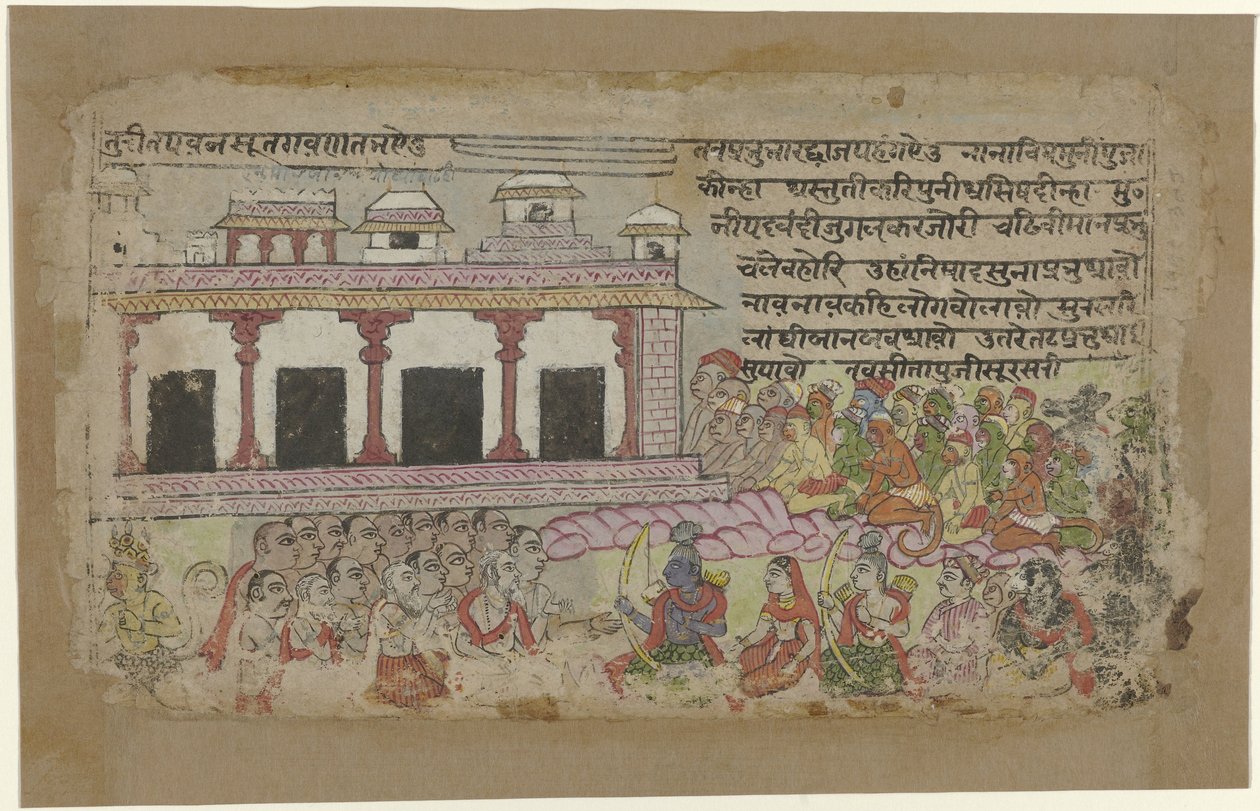 तुरीतपवनसूतगवणतभऐउ तबप्रभुभारद्वाजपहंगऐउ नानाविधमुनींपुजा
कीन्हा अस्तुतीकरिपुनीअसिषदीन्हा मु०
नीपदवंदीजुगलकरजोरी चढिवीमानप्रभु
चलेवहोरि उहांनिषादसुनाप्रभुआवो
नावनावकहिलोगवोलावो सुरसरि
नांघीजानजवआवो उतरेतटप्रभुआइ
सुपावो तवसीतापुजीसूरसरी